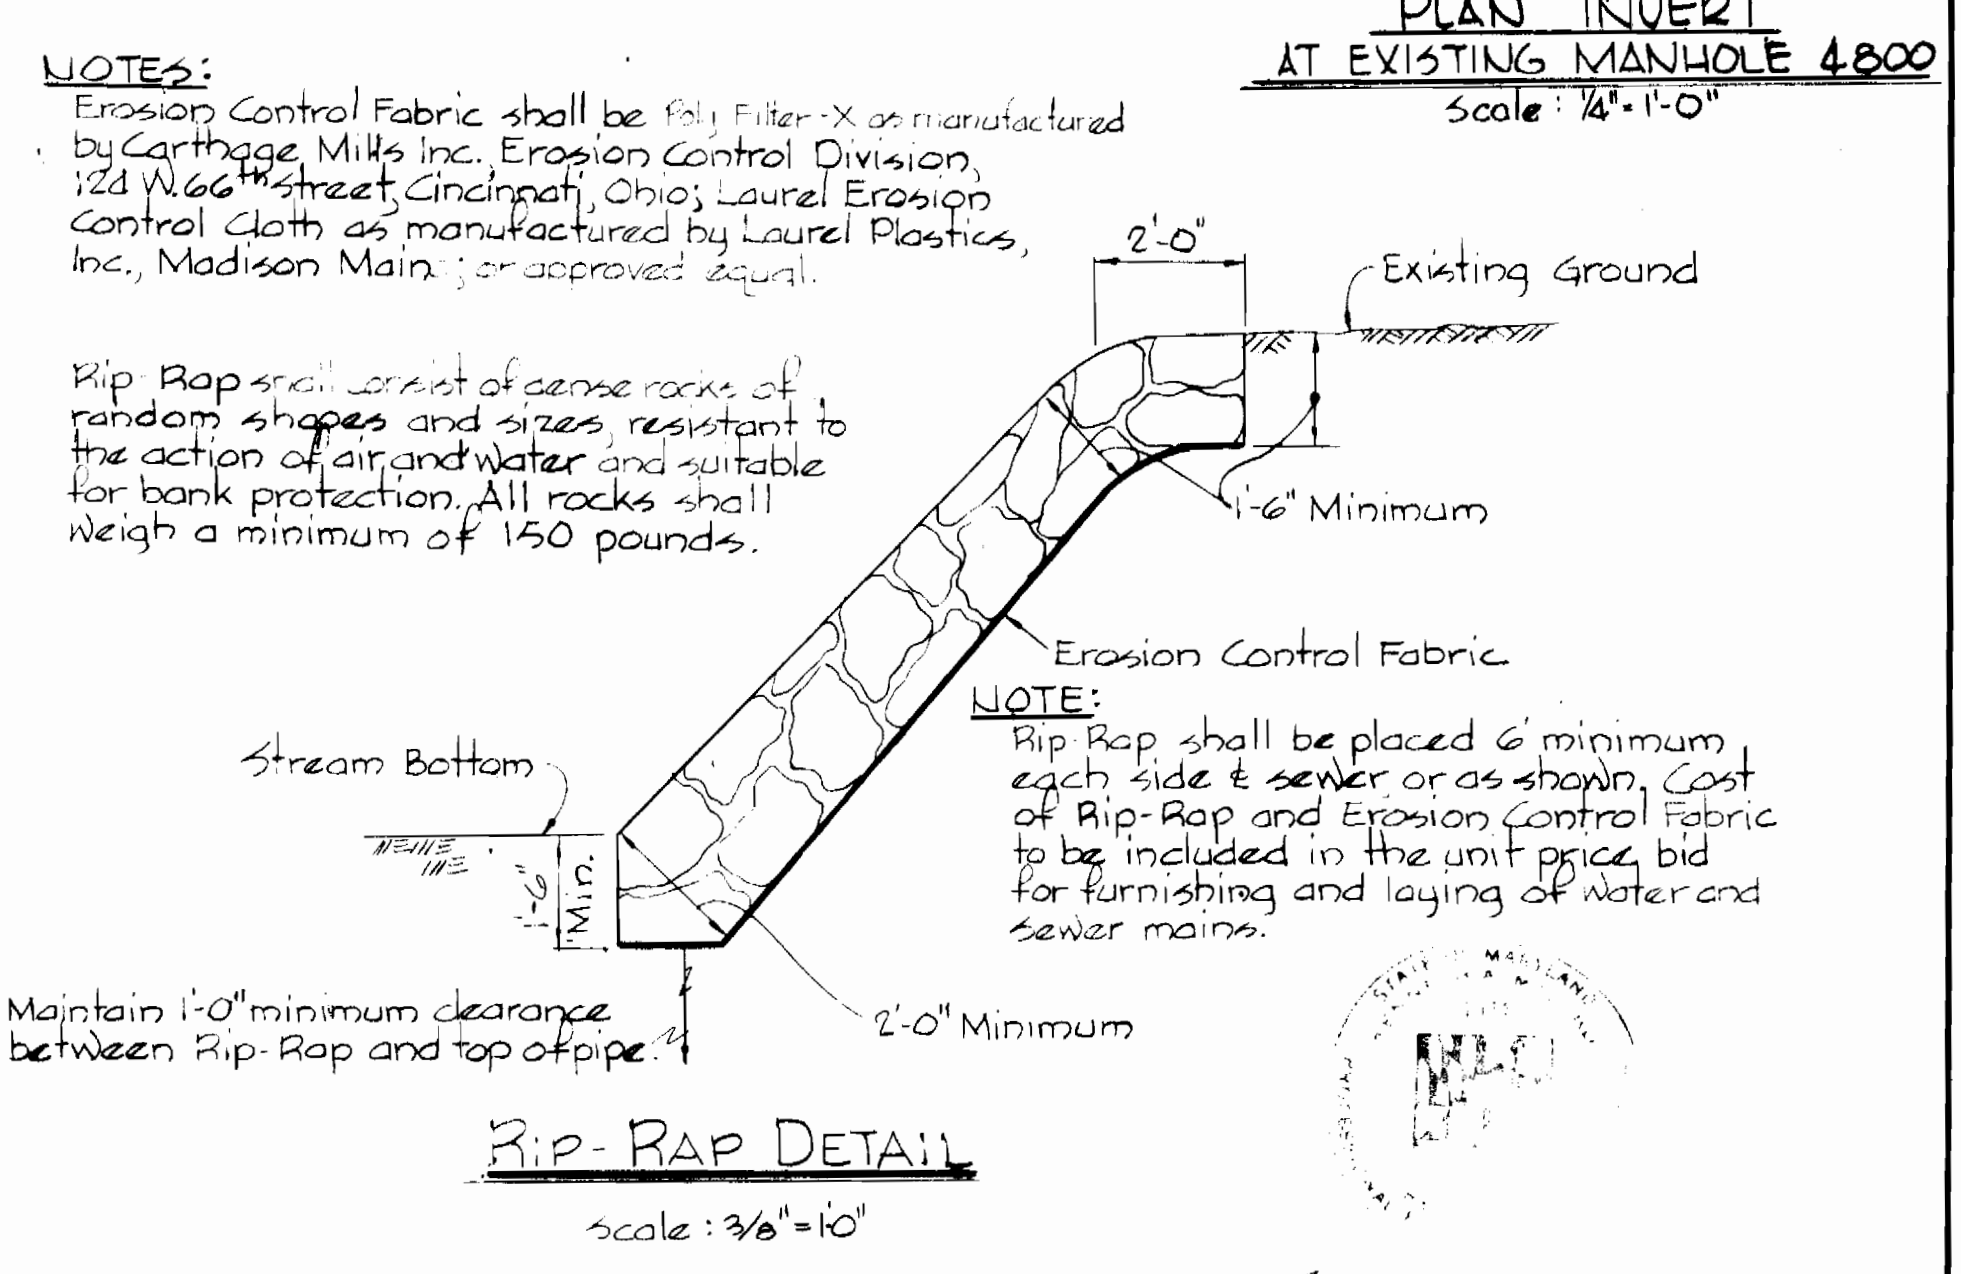 PLAN INVERT
AT EXISTING MANHOLE 4800
Scale: 1/4"=1'-0"
NOTES:
Erosion Control Fabric shall be Poly Filter-X as manufactured
by Carthage Mills Inc., Erosion Control Division,
124 W. 66th Street, Cincinnati, Ohio; Laurel Erosion
Control Cloth as manufactured by Laurel Plastics,
Inc., Madison Main; or approved equal.
Rip-Rap shall consist of dense rocks of
random shapes and sizes, resistant to
the action of air and water and suitable
for bank protection. All rocks shall
weigh a minimum of 150 pounds.
2'-0"
Existing Ground
1'-6" Minimum
Erosion Control Fabric
NOTE:
Rip-Rap shall be placed 6' minimum
each side ℄ sewer or as shown. Cost
of Rip-Rap and Erosion Control Fabric
to be included in the unit price bid
for furnishing and laying of water and
sewer mains.
Stream Bottom
1'-6"
Min.
2'-0" Minimum
Maintain 1'-0" minimum clearance
between Rip-Rap and top of pipe.
RIP-RAP DETAIL
Scale: 3/8"=1'0"
STATE OF MARYLAND